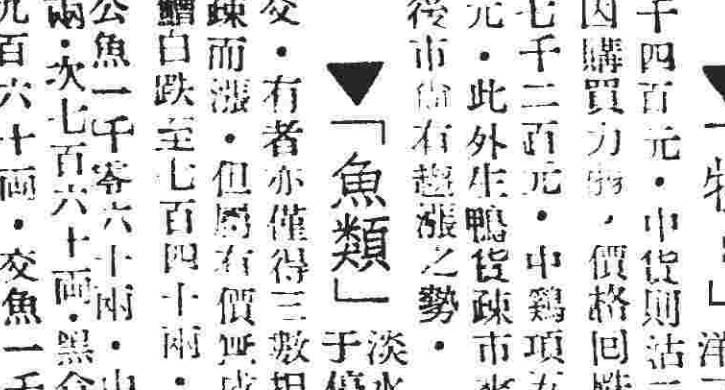 牲」
洋
千四百元・中貨則沽
因購買力弱，價格回跌
七千二百元・中鷄項
元・此外生鴨貨疎市
後市尚有趨漲之勢・
▼「魚類」
淡水
于
交・有者亦僅得三數担
疎而漲・但屬有價
鱠白跌至七百四十兩・
公魚一千零六十兩・
兩・次七百六十両・黑
九百六十両・交魚一千